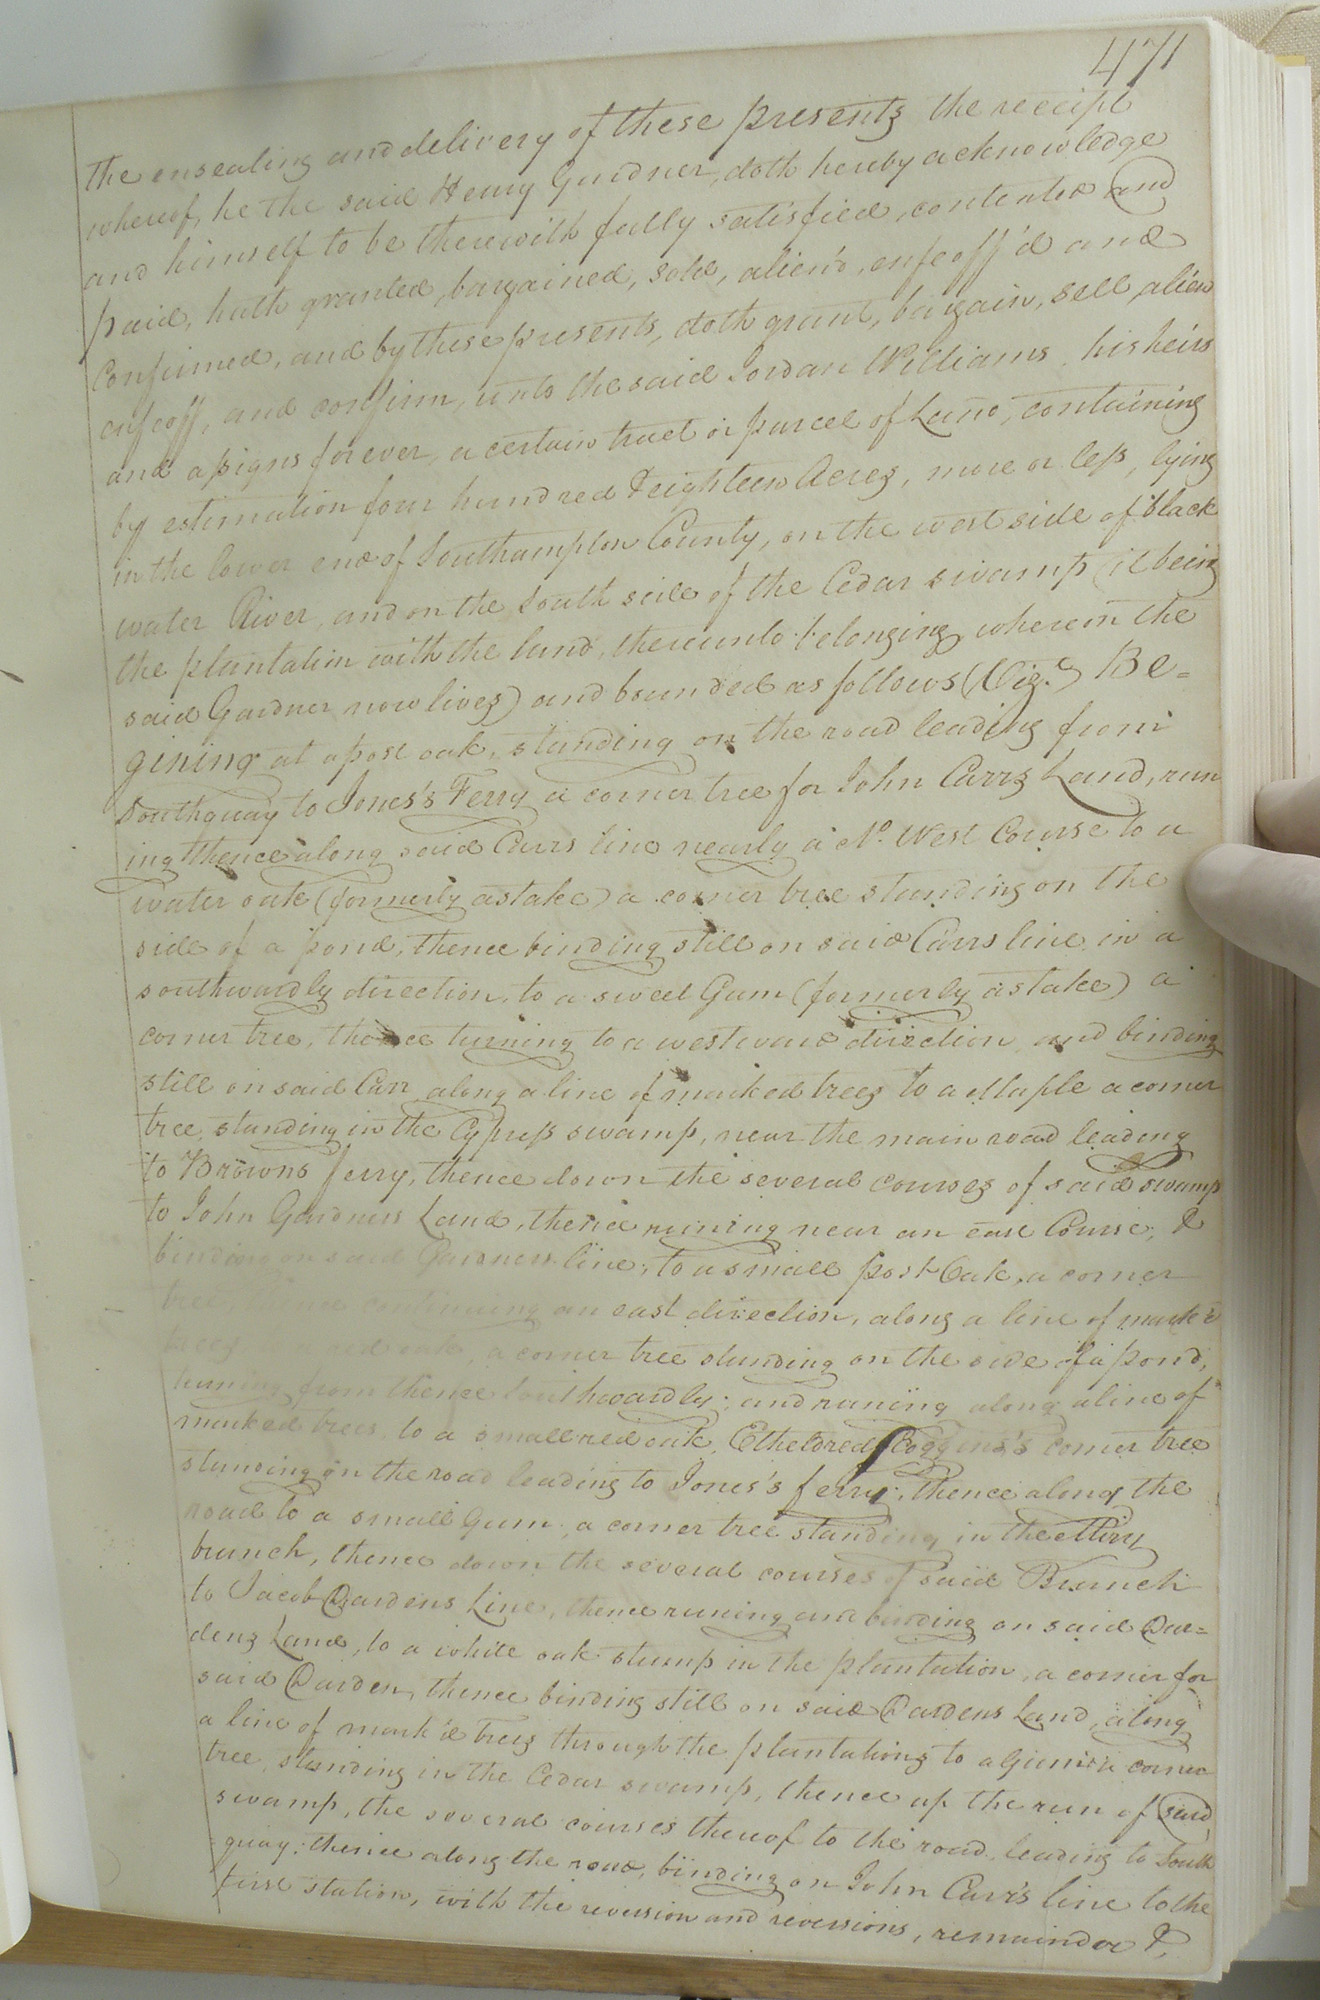 471
the ensealing and delivery of these presents the receipt
whereof, he the said Henry Gardner, doth hereby acknowledge
and himself to be therewith fully satisfied, contented and
paid, hath granted, bargained, sold, alien'd, enfeoff'd and
Confirmed, and by these presents, doth grant, bargain, sell, alien
enfeoff, and confirm, unto the said Jordan Williams, his heirs
and assigns forever, a certain tract or parcel of Land, containing
by estimation four hundred & eighteen Acres, more or less, lying
in the lower end of Southampton County, on the west side of black
water River, and on the South side of the Cedar swamp (it being
the plantation with the land, thereunto belonging wherein the
said Gardner now lives) and bounded as follows (Viz.t) Be=
gining at a post oak, standing on the road leading from
Southquay to Jones's Ferry a corner tree for John Carrs Land, run
ing thence along said Carrs line nearly a No. West Course to a
water oak (formerly a stake) a corner tree standing on the
side of a pond, thence binding still on said Carrs line in a
southwardly direction, to a sweet Gum (formerly a stake) a
corner tree, thence turning to a westward direction and binding
still on said Carr along a line of marked trees to a Maple a corner
tree, standing in the Cypress swamp, near the main road leading
to Browns ferry, thence down the several courses of said swamp
to John Gardners Land, thence runing near an east Course, &
binding on said Gardners line, to a small post Oak, a corner
tree, thence continuing an east direction, along a line of mark'd
trees red oak, a corner tree standing on the side of a pond,
turning from thence Southwardly; and runing along a line of
marked trees, to a small red oak, Etheldred Coggins's corner tree
standing on the road leading to Jones's ferry; thence along the
road to a small Gum, a corner tree standing in the Miry
branch, thence down the several courses of said Branch
to Jacob Dardens Line, thence runing and binding on said Dar=
dens Land, to a white oak stump in the plantation, a corner for
said Darden, thence binding still on said Dardens Land, along
a line of mark'd trees through the plantations to a Gum a corner
tree, standing in the Cedar swamp, thence up the run of said
swamp, the several courses thereof to the road leading to South
quay; thence along the road, binding on John Carr's line to the
first station, with the revession and reversions, remainder &